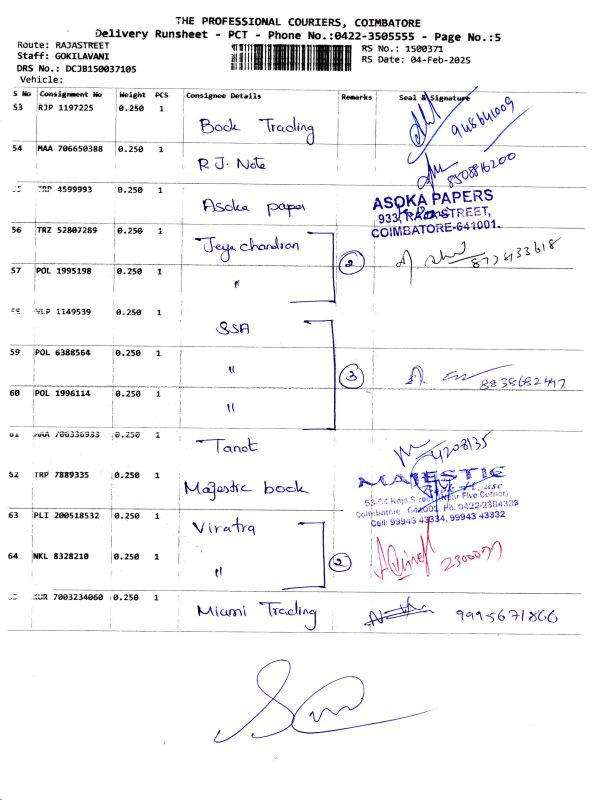 THE PROFESSIONAL COURIERS, COIMBATORE
Delivery Runsheet - PCT - Phone No.:0422-3505555 - Page No.:5
Route: RAJASTREET
RS No.: 1500371
Staff: GOKILAVANI
RS Date: 04-Feb-2025
DRS No.: DCJB150037105
Vehicle:
S No Consignment No Weight PCS Consignee Details Remarks Seal & Signature
53 RJP 1197225 0.250 1 Book Trading
54 MAA 706650388 0.250 1 R.J. Note 8508816200
4599993 0.250 1 Asoka paper
ASOKA PAPERS
933, RAJA STREET,
COIMBATORE-641001.
56 TRZ 52807289 0.250 1 Jeya chandran
2
57 POL 1995198 0.250 1 "
1149539 0.250 1 SSA
59 POL 6388564 0.250 1 "
3 8838682447
60 POL 1996114 0.250 1 "
706336933 0.250 1 Tanot 4208135
62 TRP 7889335 0.250 1 Majestic book
MAJESTIC
Coimbatore - 641001. Ph: 0422-2384333
Cell: 99943 43334, 99943 43332
63 PLI 200518532 0.250 1 Viratra
2 2300077
64 NKL 8328210 0.250 1 "
7003234060 0.250 1 Miami Trading 9995671866